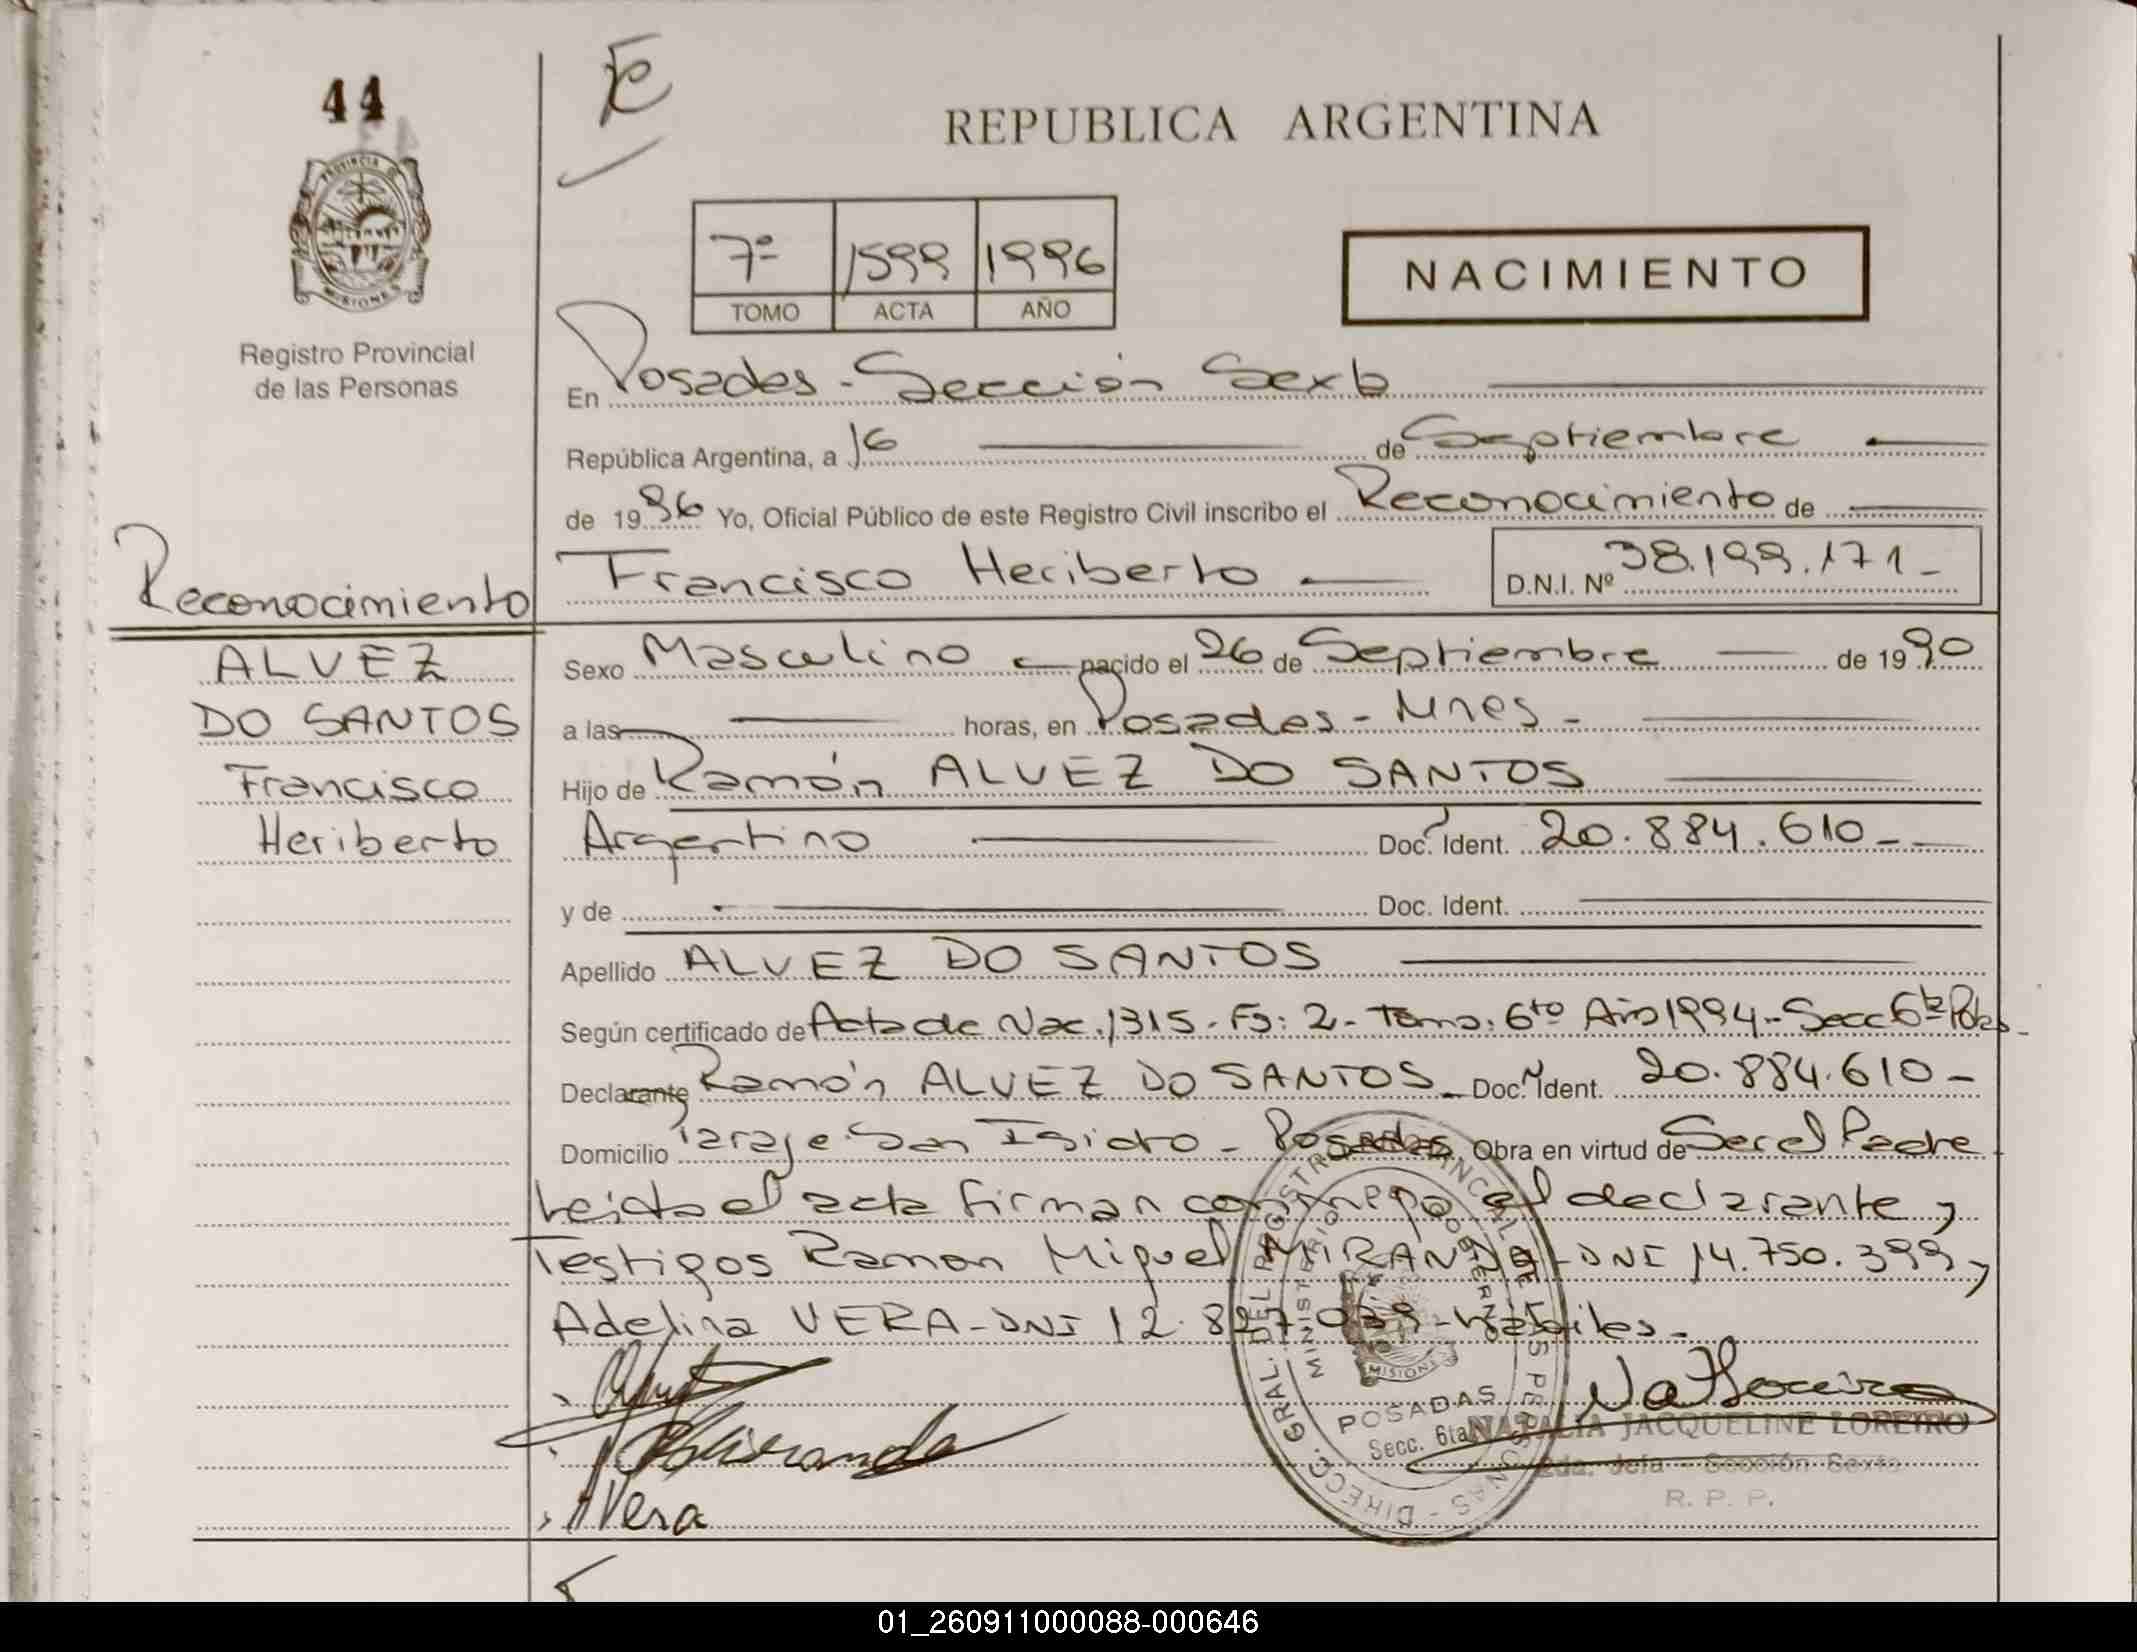 44
E
REPUBLICA ARGENTINA
PROVINCIA DE
MISIONES
Registro Provincial
de las Personas
7º 1599 1996
TOMO ACTA AÑO
NACIMIENTO
En Posadas - Sección Sexta
República Argentina, a 16 de Septiembre
de 1996 Yo, Oficial Público de este Registro Civil inscribo el Reconocimiento de
Francisco Heriberto D.N.I. Nº 38.199.171-
Reconocimiento
ALVEZ
DO SANTOS
Francisco
Heriberto
Sexo Masculino nacido el 26 de Septiembre de 1990
a las horas, en Posadas - Mnes -
Hijo de Ramón ALVEZ DO SANTOS
Argentino Doc. Ident. 20.884.610-
y de Doc. Ident.
Apellido ALVEZ DO SANTOS
Según certificado de Acta de Nac. 1315 - Fs: 2 - Tomo: 6to Año 1994 - Secc 6ta Pdas -
Declarante Ramón ALVEZ DO SANTOS - Doc. Ident. 20.884.610-
Domicilio Paraje San Isidro - Posadas Obra en virtud de Ser el Padre
Leída el acta firman conmigo el declarante y
Testigos Ramon Miguel MIRANDA - DNI 14.750.399 y
Adelina VERA - DNI 12.827.039 - hábiles -
Miranda
AVera
DIRECC. GRAL. DEL REGISTRO PROVINCIAL DE LAS PERSONAS
MINISTERIO DE GOBIERNO
MISIONES
POSADAS
Secc. 6ta
NATALIA JACQUELINE LOREIRO
2da. Jefa - Sección Sexta
R. P. P.
01_260911000088-000646